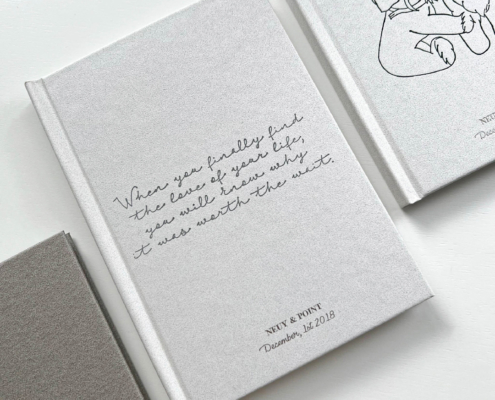 When you finally find
the love of your life,
you will know why
it was worth the wait.
NEUY & POINT
December, 1st 2018
NEUY
Decem